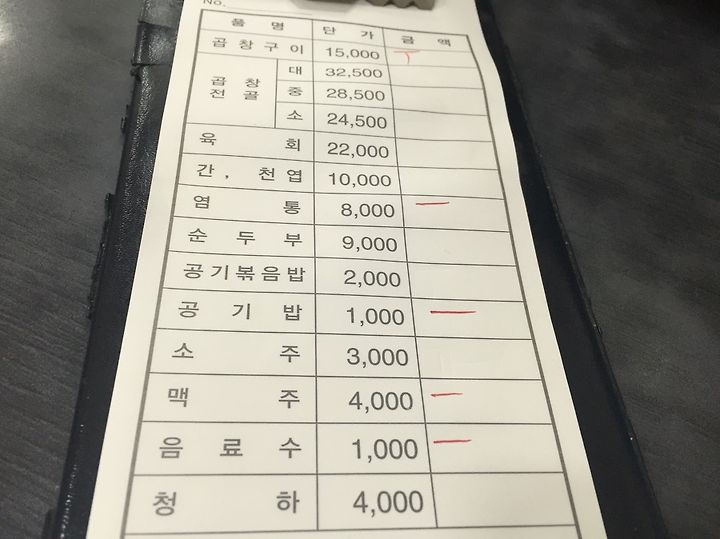 No.
품 명 단 가 금 액
곱창구이 15,000
곱창전골 대 32,500
중 28,500
소 24,500
육 회 22,000
간, 천엽 10,000
염 통 8,000
순 두 부 9,000
공기볶음밥 2,000
공 기 밥 1,000
소 주 3,000
맥 주 4,000
음 료 수 1,000
청 하 4,000